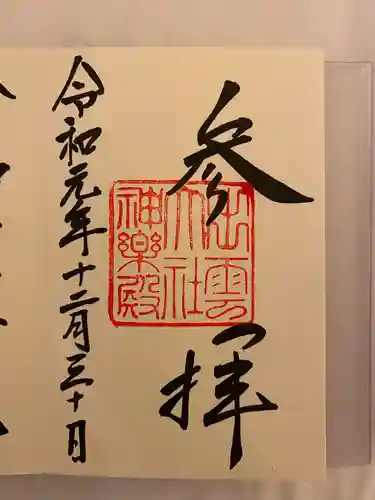 参拝
出雲
大社
神樂殿
令和元年十二月三十日